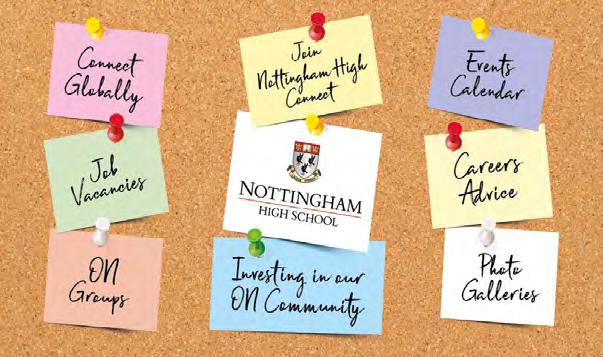 Connect
Globally
Join
Nottingham High
Connect
Events
Calendar
Job
Vacancies
NOTTINGHAM
HIGH SCHOOL
Careers
Advice
ON
Groups
Investing in our
ON Community
Photo
Galleries